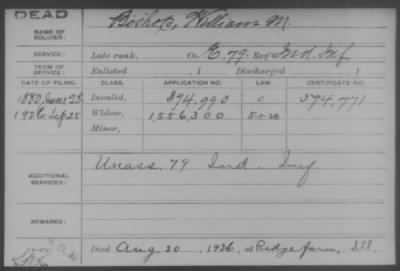 DEAD
NAME OF SOLDIER: Bishop, William M.
SERVICE: Late rank, Co. E. 79 Reg Ind Inf
TERM OF SERVICE: Enlisted , 1 Discharged , 1
DATE OF FILING. CLASS. APPLICATION NO. LAW. CERTIFICATE NO.
1880 June 25 Invalid, 394.990 0 394,771
1926 Sep 25 Widow, 1,556,300
Minor,
ADDITIONAL SERVICES: Unass. 79 Ind. Inf.
REMARKS:
Died Aug 30, 1926, at Ridgefarm, Ill.